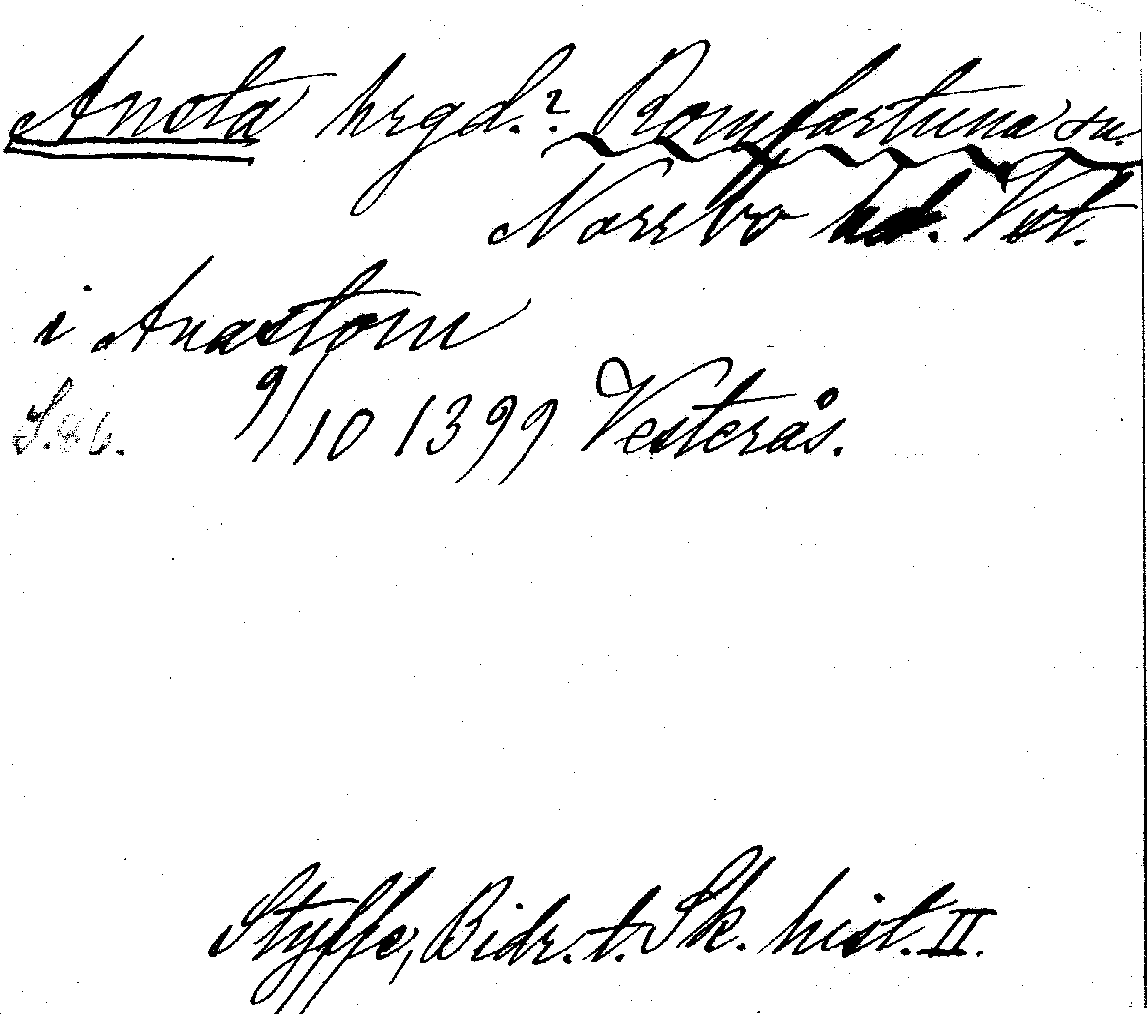 Anota hrgd.? Romfartuna sn.
Norrbo hd. Vstl.
i Anastom
S. 86. 9/10 1399 Vesterås.
Styffe, Bidr. t. Sk. hist. II.